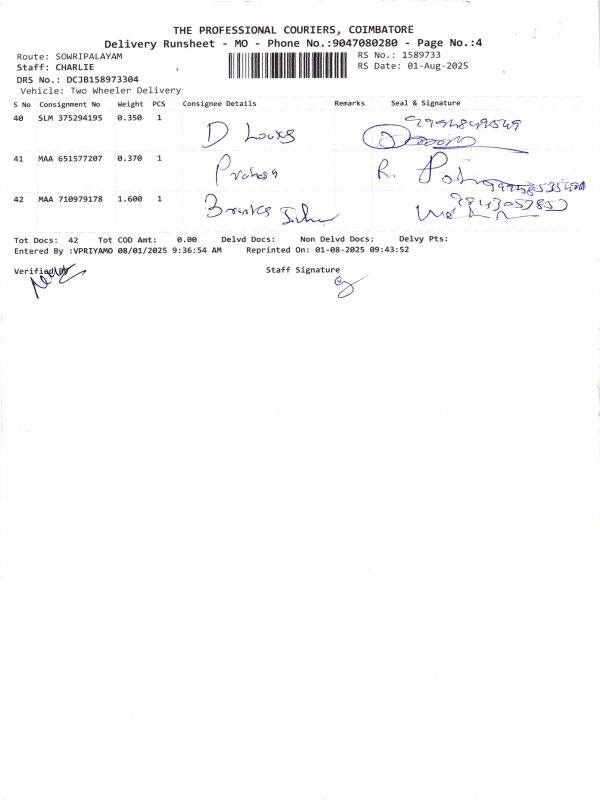 THE PROFESSIONAL COURIERS, COIMBATORE
Delivery Runsheet - MO - Phone No.:9047080280 - Page No.:4
Route: SOWRIPALAYAM RS No.: 1589733
Staff: CHARLIE RS Date: 01-Aug-2025
DRS No.: DCJB158973304
Vehicle: Two Wheeler Delivery
S No Consignment No Weight PCS Consignee Details Remarks Seal & Signature
40 SLM 375294195 0.350 1 D
41 MAA 651577207 0.370 1 Prakash R.
42 MAA 710979178 1.600 1
Tot Docs: 42 Tot COD Amt: 0.00 Delvd Docs: Non Delvd Docs: Delvy Pts:
Entered By :VPRIYAMO 08/01/2025 9:36:54 AM Reprinted On: 01-08-2025 09:43:52
Verified By Staff Signature